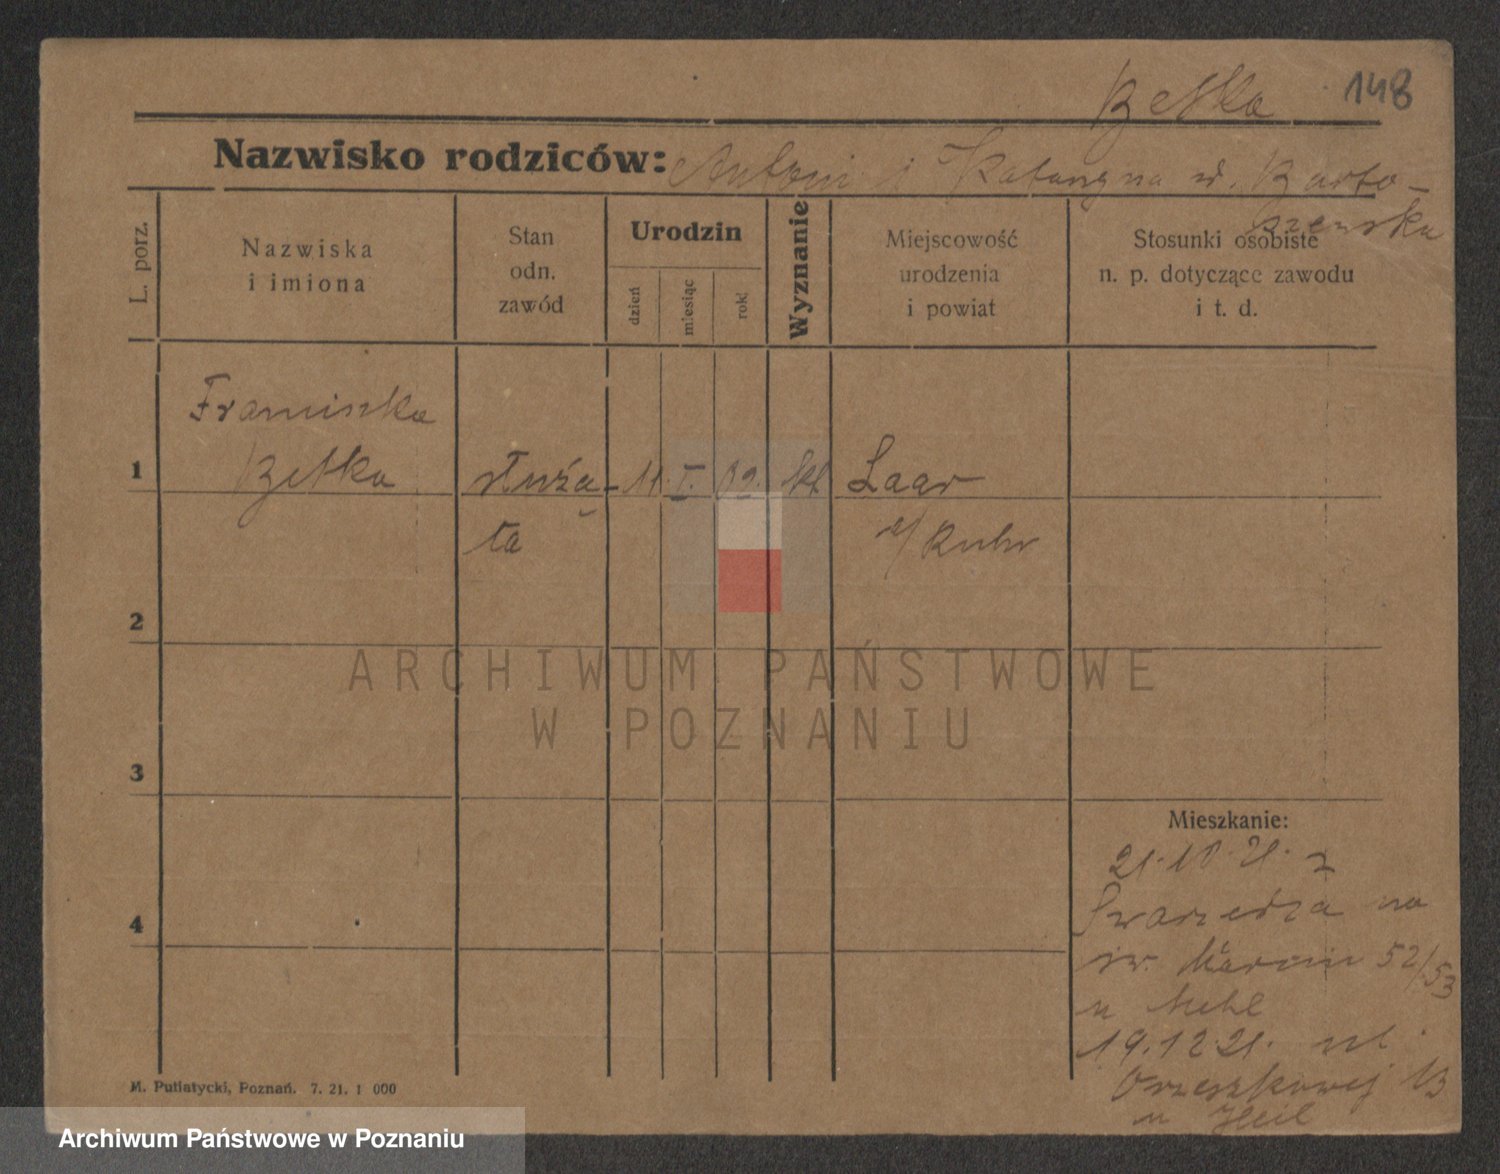 Betka 148
Nazwisko rodziców: Antoni i Katarzyna
L. porz.
Nazwiska
i imiona
Stan
odn.
zawód
Urodzin
dzień
miesiąc
rok
Wyznanie
Miejscowość
urodzenia
i powiat
Stosunki osobiste
n. p. dotyczące zawodu
i t. d.
Franciszka
1 Betka służą- 11. I. 02. kt Laar
ca a/ Ruhr
2
3
4
Mieszkanie:
21.10.21. z
Swarzędza na
św. Marcin 52/53
u
19.12.21. ul.
Orzeszkowej 13
u
M. Putiatycki, Poznań. 7. 21. 1 000
ARCHIWUM PAŃSTWOWE
W POZNANIU
Archiwum Państwowe w Poznaniu